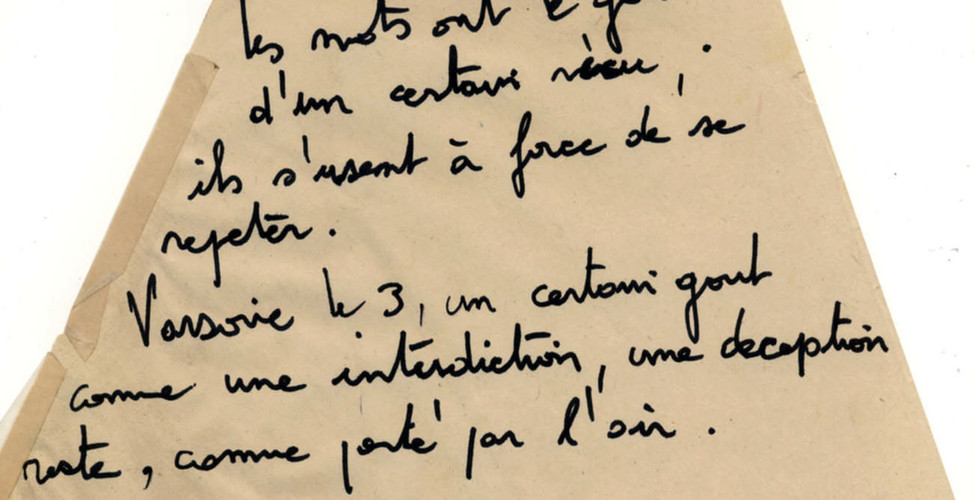 les mots ont le
d'un certain vécu,
ils s'usent à force de se
rejeter.
Varsovie le 3, un certain gout
comme une interdiction, une deception
reste, comme porté par l'air.